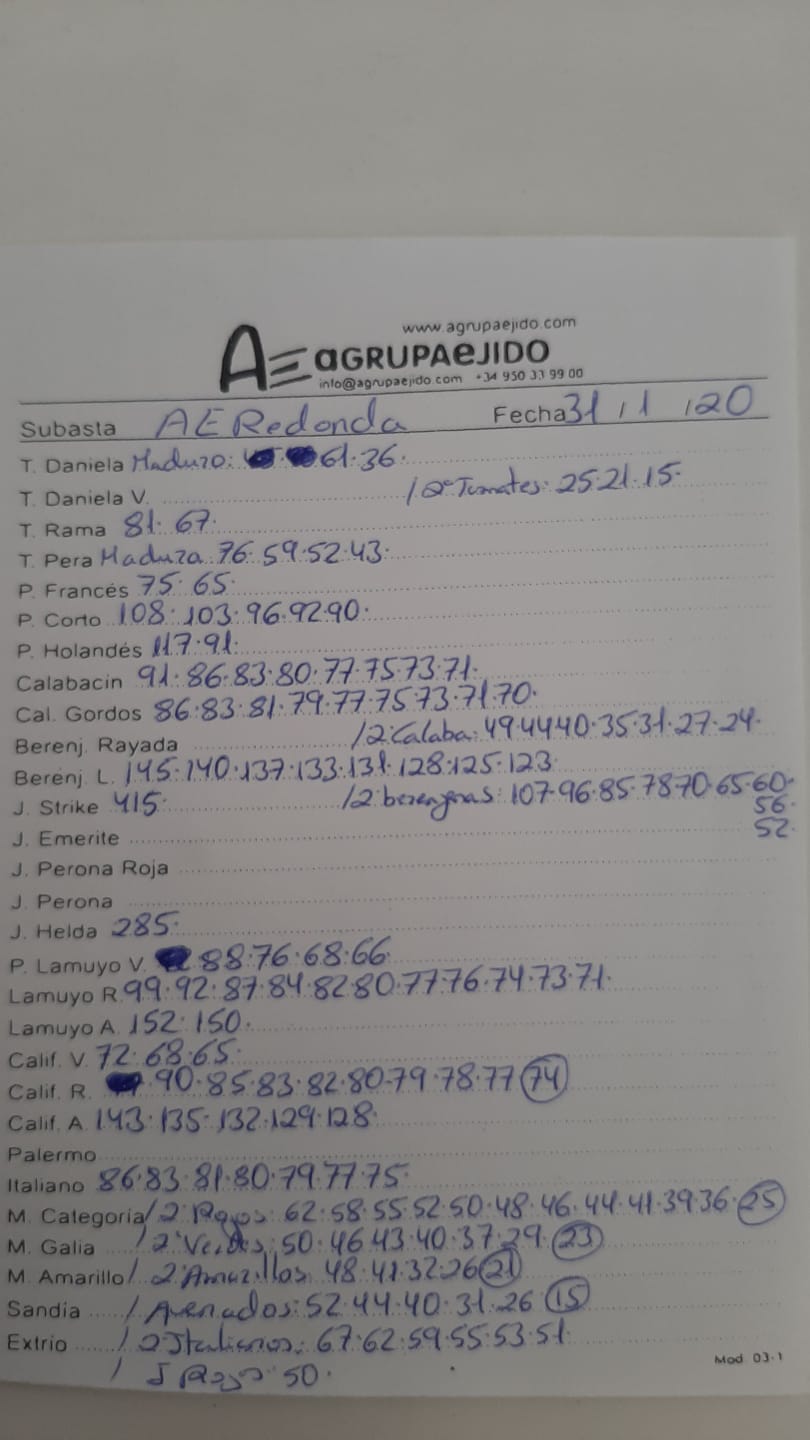 www.agrupaejido.com
AE AGRUPAEJIDO
info@agrupaejido.com +34 950 33 99 00
Subasta AE Redonda Fecha 31/1/20
T. Daniela Maduro: 61·36·
T. Daniela V. /2ª Tomates: 25·21·15·
T. Rama 81·67·
T. Pera Madura 76·59·52·43·
P. Francés 75·65·
P. Corto 108·103·96·92·90·
P. Holandés 117·91·
Calabacin 91·86·83·80·77·75·73·71·
Cal. Gordos 86·83·81·79·77·75·73·71·70·
Berenj. Rayada /2ª Calaba: 49·44·40·35·31·27·24·
Berenj. L. 145·140·137·133·131·128·125·123·
J. Strike 415· /2ª berengenas: 107·96·85·78·70·65·60·
56·
J. Emerite 52·
J. Perona Roja
J. Perona
J. Helda 285·
P. Lamuyo V. 88·76·68·66·
Lamuyo R. 99·92·87·84·82·80·77·76·74·73·71·
Lamuyo A. 152·150·
Calif. V. 72·68·65·
Calif. R. 90·85·83·82·80·79·78·77 74
Calif. A. 143·135·132·129·128·
Palermo
Italiano 86·83·81·80·79·77·75·
M. Categoría /2ª Rojos: 62·58·55·52·50·48·46·44·41·39·36· 25
M. Galia /2ª Verdes: 50·46·43·40·37·29· 23
M. Amarillo /2ª Amarillos 48·41·32·26 21
Sandía / Asenados: 52·44·40·31·26 15
Extrio /2 Italianos: 67·62·59·55·53·51·
/ J Rojo 50·
Mod. 03-1